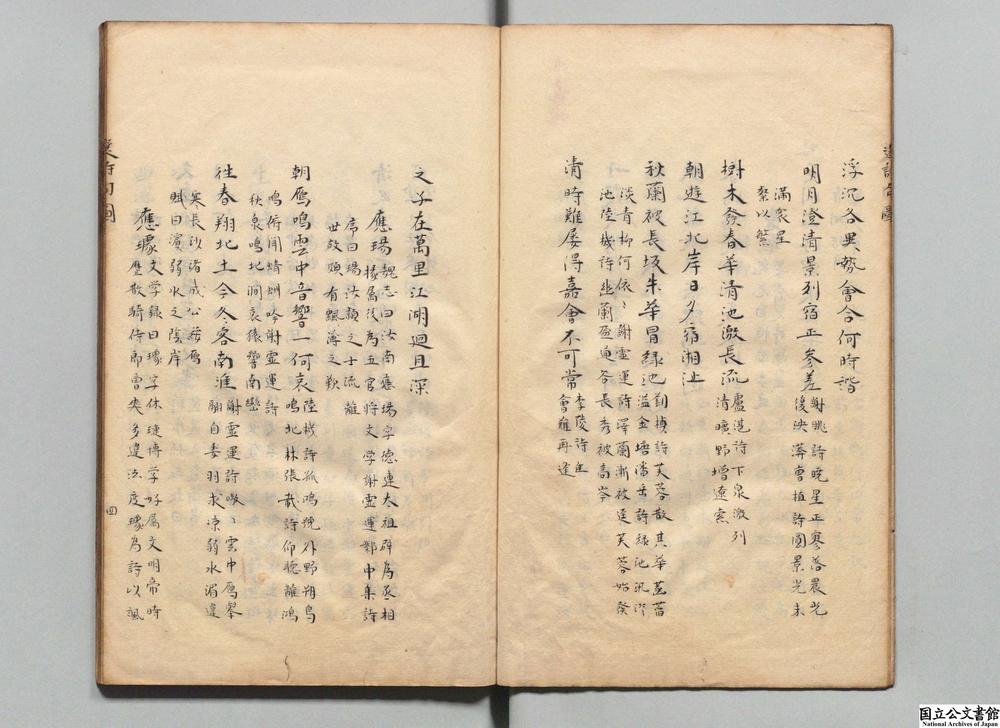 浮沉各異勢會合何時諧
明月澄清景列宿正參差 謝眺詩晩星正寥落晨光
復泱漭曹植詩圓景光未
滿衆星
粲以繁
樹木發春華清池激長流 盧諶詩下泉激冽
清曠野增遼索
朝遊江北岸日夕宿湘沚
秋蘭被長坂朱華冒緑池 劉楨詩芙蓉散其華菡萏
溢金塘潘岳詩緑池汎淡
淡青柳何依ゝ謝靈運詩澤蘭漸被逕芙蓉始發
池陸機詩幽蘭盈通谷長秀被高岑
清時難屡得嘉會不可常 李陵詩
會難再逢
之子在萬里江湖迥且深
應瑒 魏志曰汝南應瑒字德連太祖辟爲丞相
掾屬後爲五官將文學謝靈運鄴中集詩
席曰瑒汝頴之士流離
世故頗有飄薄之歎
朝鴈鳴雲中音響一何哀 陸機詩孤鴻挽外野朔鳥
鳴北林張載詩仰聴離鴻
鳴俯聞蜻蛚吟謝靈運詩
秋泉鳴北澗哀猿響南巒
徃春翔北土今冬客南淮 謝靈運詩嗷ゝ雲中鴈擧
翮自委羽求凉弱水湄違
寒長沙渚成公綏鴈
賦曰濱弱水之陰岸
應璩 文学録曰璩字休璉博学好属文明帝時
歴散騎侍郎曹爽多違法度璩為詩以諷
四
国立公文書館
National Archives of Japan